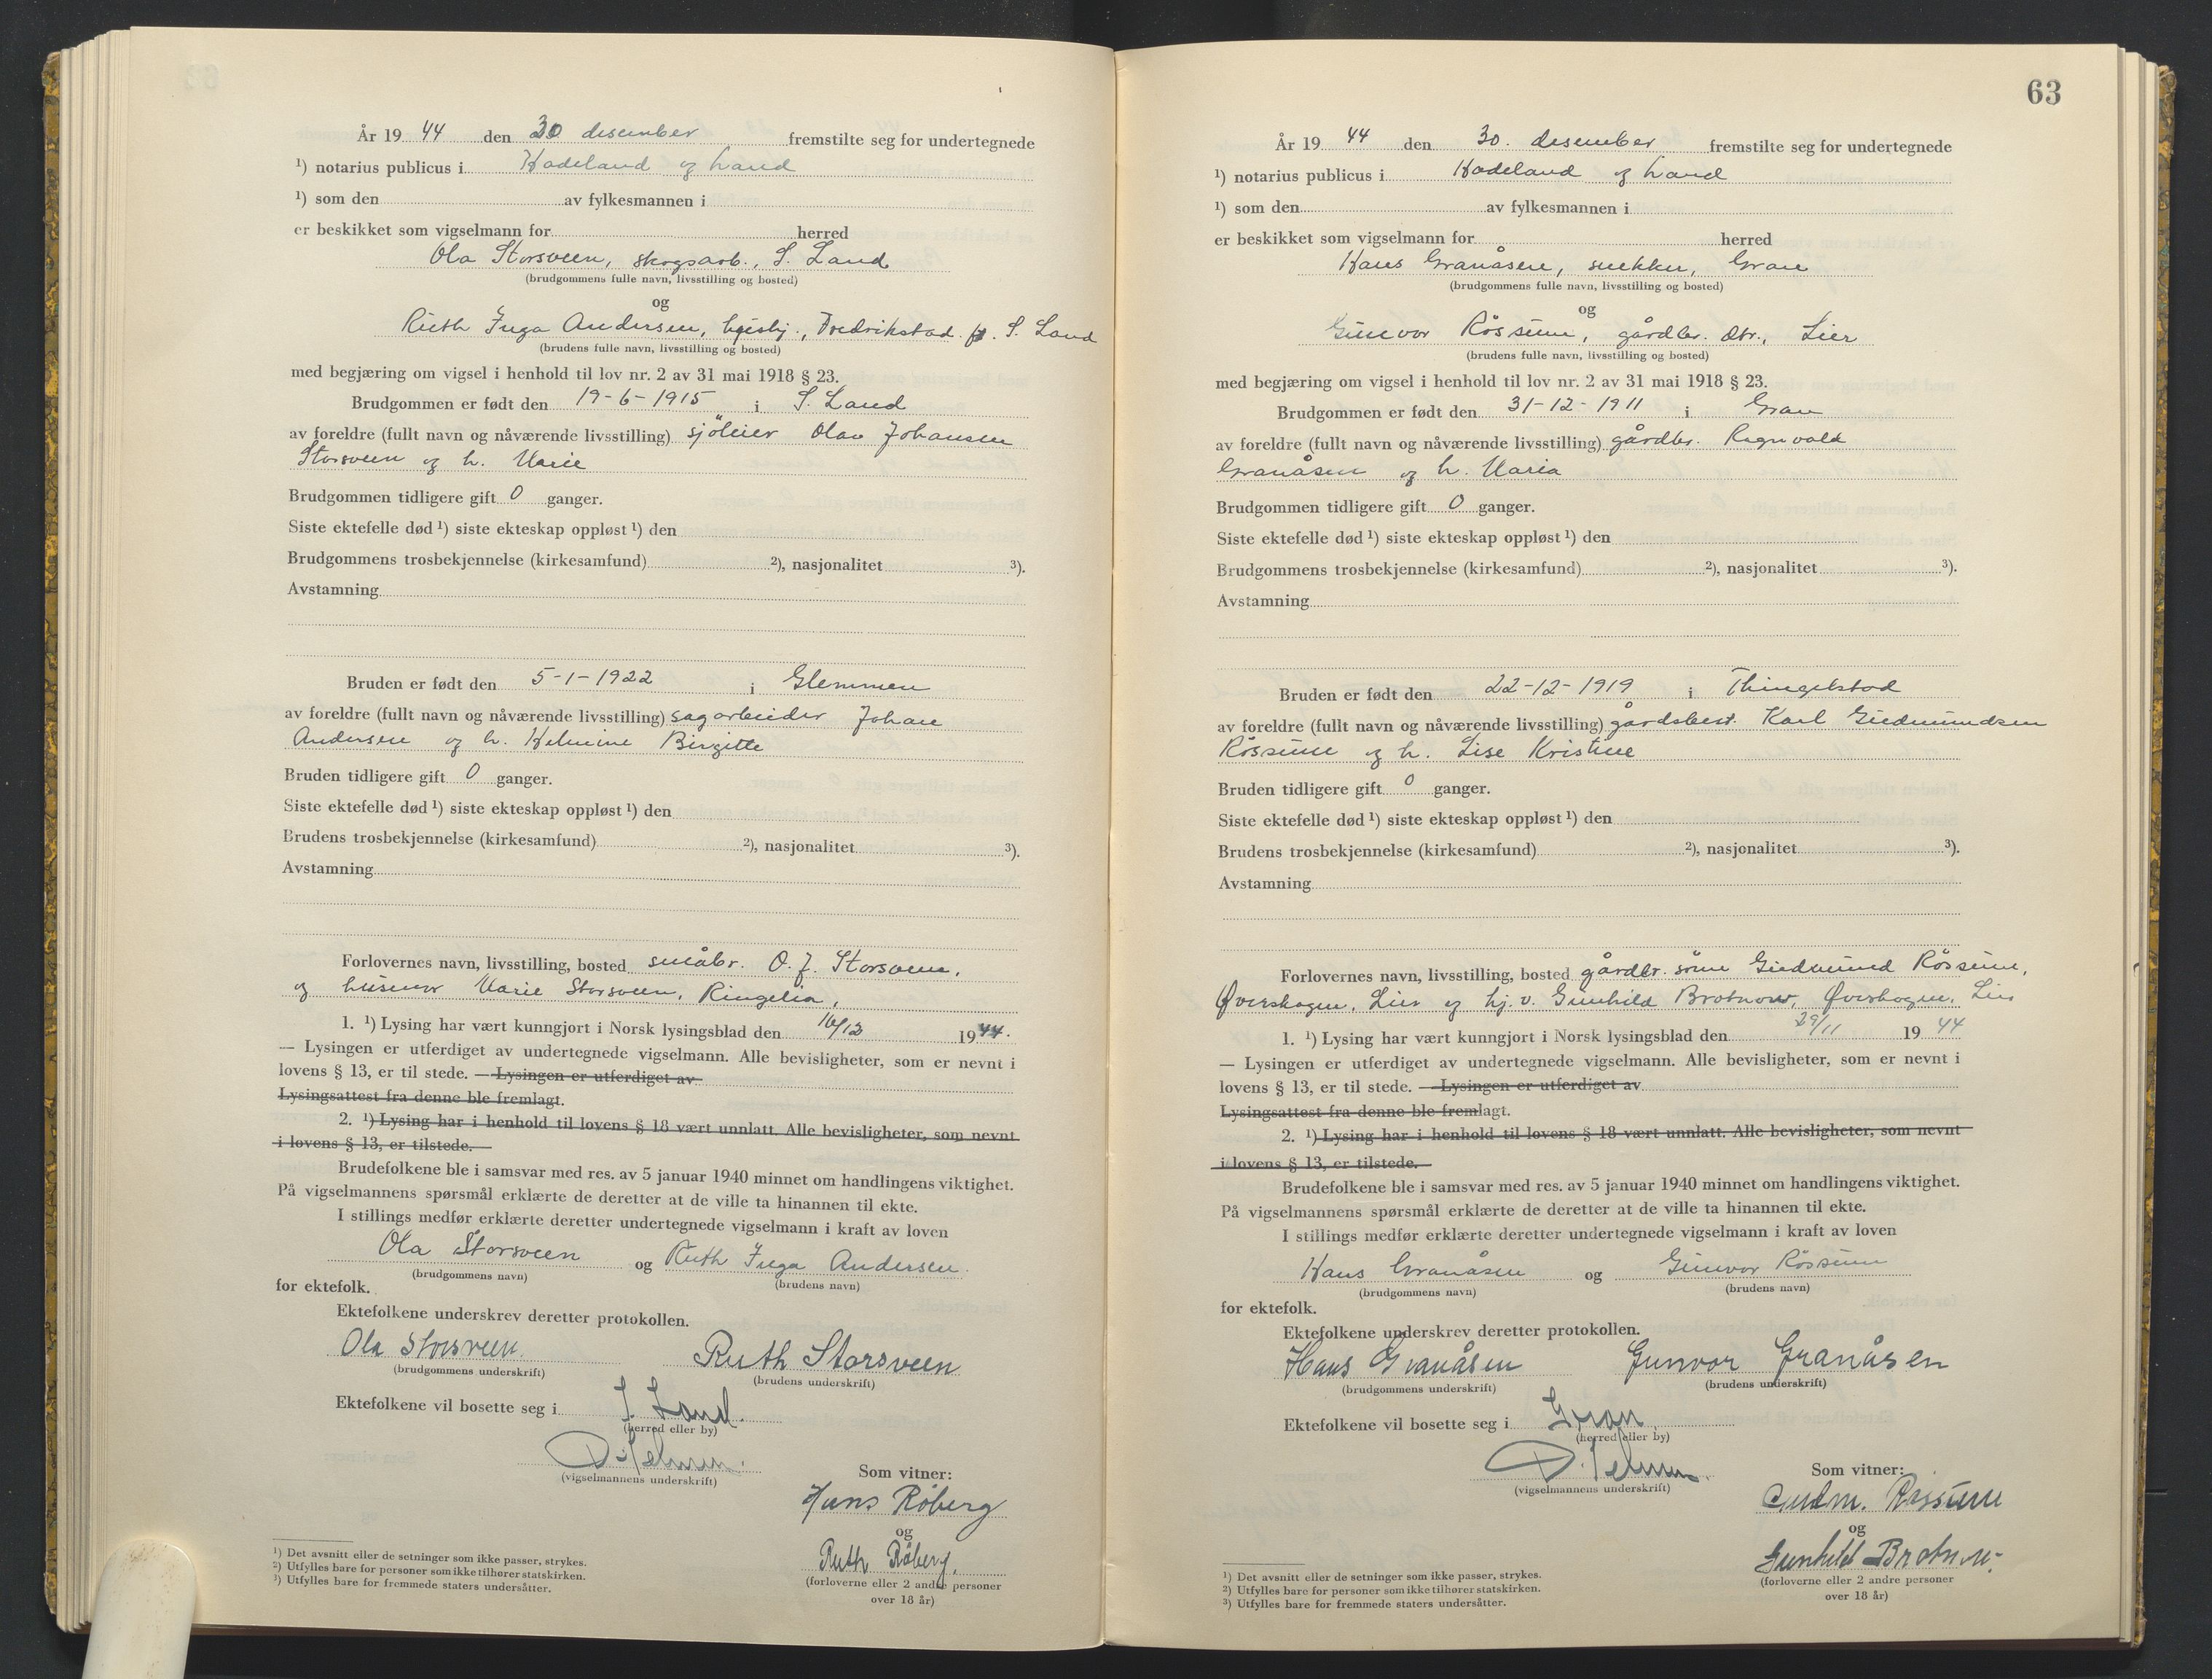 År 19 44 den 30 desember fremstilte seg for undertegnede
¹) notarius publicus i Hadeland og Land
¹) som den av fylkesmannen i
er beskikket som vigselmann for herred
Ola Storsveen, skogsarb., S. Land
(brudgommens fulle navn, livsstilling og bosted)
og
Ruth Inga Andersen, Fredrikstad. S. Land
(brudens fulle navn, livsstilling og bosted)
med begjæring om vigsel i henhold til lov nr. 2 av 31 mai 1918 § 23.
Brudgommen er født den 19-6-1915 i S. Land
av foreldre (fullt navn og nåværende livsstilling) sjøleier Olav Johansen
Storsveen og h. Marie
Brudgommen tidligere gift 0 ganger.
Siste ektefelle død ¹) siste ekteskap oppløst ¹) den
Brudgommens trosbekjennelse (kirkesamfund) ²), nasjonalitet ³).
Avstamning
Bruden er født den 5-1-1922 i Glemmen
av foreldre (fullt navn og nåværende livsstilling) sagarbeider Johan
Andersen og h. Helmine Birgitte
Bruden tidligere gift 0 ganger.
Siste ektefelle død ¹) siste ekteskap oppløst ¹) den
Brudens trosbekjennelse (kirkesamfund) ²), nasjonalitet ³).
Avstamning
Forlovernes navn, livsstilling, bosted småbr. O. J. Storsveen,
og husmor Marie Storsveen, Ringelia,
1. ¹) Lysing har vært kunngjort i Norsk lysingsblad den 16/12 1944.
— Lysingen er utferdiget av undertegnede vigselmann. Alle bevisligheter, som er nevnt i
lovens § 13, er til stede. — Lysingen er utferdiget av
Lysingsattest fra denne ble fremlagt.
2. ¹) Lysing har i henhold til lovens § 18 vært unnlatt. Alle bevisligheter, som nevnt
i lovens § 13, er tilstede. —
Brudefolkene ble i samsvar med res. av 5 januar 1940 minnet om handlingens viktighet.
På vigselmannens spørsmål erklærte de deretter at de ville ta hinannen til ekte.
I stillings medfør erklærte deretter undertegnede vigselmann i kraft av loven
Ola Storsveen og Ruth Inga Andersen.
(brudgommens navn) (brudens navn)
for ektefolk.
Ektefolkene underskrev deretter protokollen.
Ola Storsveen. Ruth Storsveen
(brudgommens underskrift) (brudens underskrift)
Ektefolkene vil bosette seg i S. Land.
(herred eller by)
(vigselmannens underskrift)
Som vitner:
Hans Røberg
og
Ruth Røberg.
(forloverne eller 2 andre personer
over 18 år)
¹) Det avsnitt eller de setninger som ikke passer, strykes.
²) Utfylles bare for personer som ikke tilhører statskirken.
³) Utfylles bare for fremmede staters undersåtter.
63
År 19 44 den 30. desember fremstilte seg for undertegnede
¹) notarius publicus i Hadeland og Land
¹) som den av fylkesmannen i
er beskikket som vigselmann for herred
Hans Granåsen, snekker, Gran
(brudgommens fulle navn, livsstilling og bosted)
og
Gunvor Røssum, gårdbr. dtr., Lier
(brudens fulle navn, livsstilling og bosted)
med begjæring om vigsel i henhold til lov nr. 2 av 31 mai 1918 § 23.
Brudgommen er født den 31-12-1911 i Gran
av foreldre (fullt navn og nåværende livsstilling) gårdbr. Ragnvald
Granåsen og h. Maria
Brudgommen tidligere gift 0 ganger.
Siste ektefelle død ¹) siste ekteskap oppløst ¹) den
Brudgommens trosbekjennelse (kirkesamfund) ²), nasjonalitet ³).
Avstamning
Bruden er født den 22-12-1919 i Thingelstad
av foreldre (fullt navn og nåværende livsstilling) gårdsbest. Karl Gudmundsen
Røssum og h. Lise Kristine
Bruden tidligere gift 0 ganger.
Siste ektefelle død ¹) siste ekteskap oppløst ¹) den
Brudens trosbekjennelse (kirkesamfund) ²), nasjonalitet ³).
Avstamning
Forlovernes navn, livsstilling, bosted gårdbr. sønn Gudmund Røssum,
Øverskogen, Lier og hj.v. Gunhild Brotnow, Øverskogen, Lier
1. ¹) Lysing har vært kunngjort i Norsk lysingsblad den 29/11 19 44
— Lysingen er utferdiget av undertegnede vigselmann. Alle bevisligheter, som er nevnt i
lovens § 13, er til stede. — Lysingen er utferdiget av
Lysingsattest fra denne ble fremlagt.
2. ¹) Lysing har i henhold til lovens § 18 vært unnlatt. Alle bevisligheter, som nevnt
i lovens § 13, er tilstede. —
Brudefolkene ble i samsvar med res. av 5 januar 1940 minnet om handlingens viktighet.
På vigselmannens spørsmål erklærte de deretter at de ville ta hinannen til ekte.
I stillings medfør erklærte deretter undertegnede vigselmann i kraft av loven
Hans Granåsen og Gunvor Røssum
(brudgommens navn) (brudens navn)
for ektefolk.
Ektefolkene underskrev deretter protokollen.
Hans Granåsen Gunvor Granåsen
(brudgommens underskrift) (brudens underskrift)
Ektefolkene vil bosette seg i Gran
(herred eller by)
(vigselmannens underskrift)
Som vitner:
Gudm. Røssum
og
Gunhild Brotnow.
(forloverne eller 2 andre personer
over 18 år)
¹) Det avsnitt eller de setninger som ikke passer, strykes.
²) Utfylles bare for personer som ikke tilhører statskirken.
³) Utfylles bare for fremmede staters undersåtter.